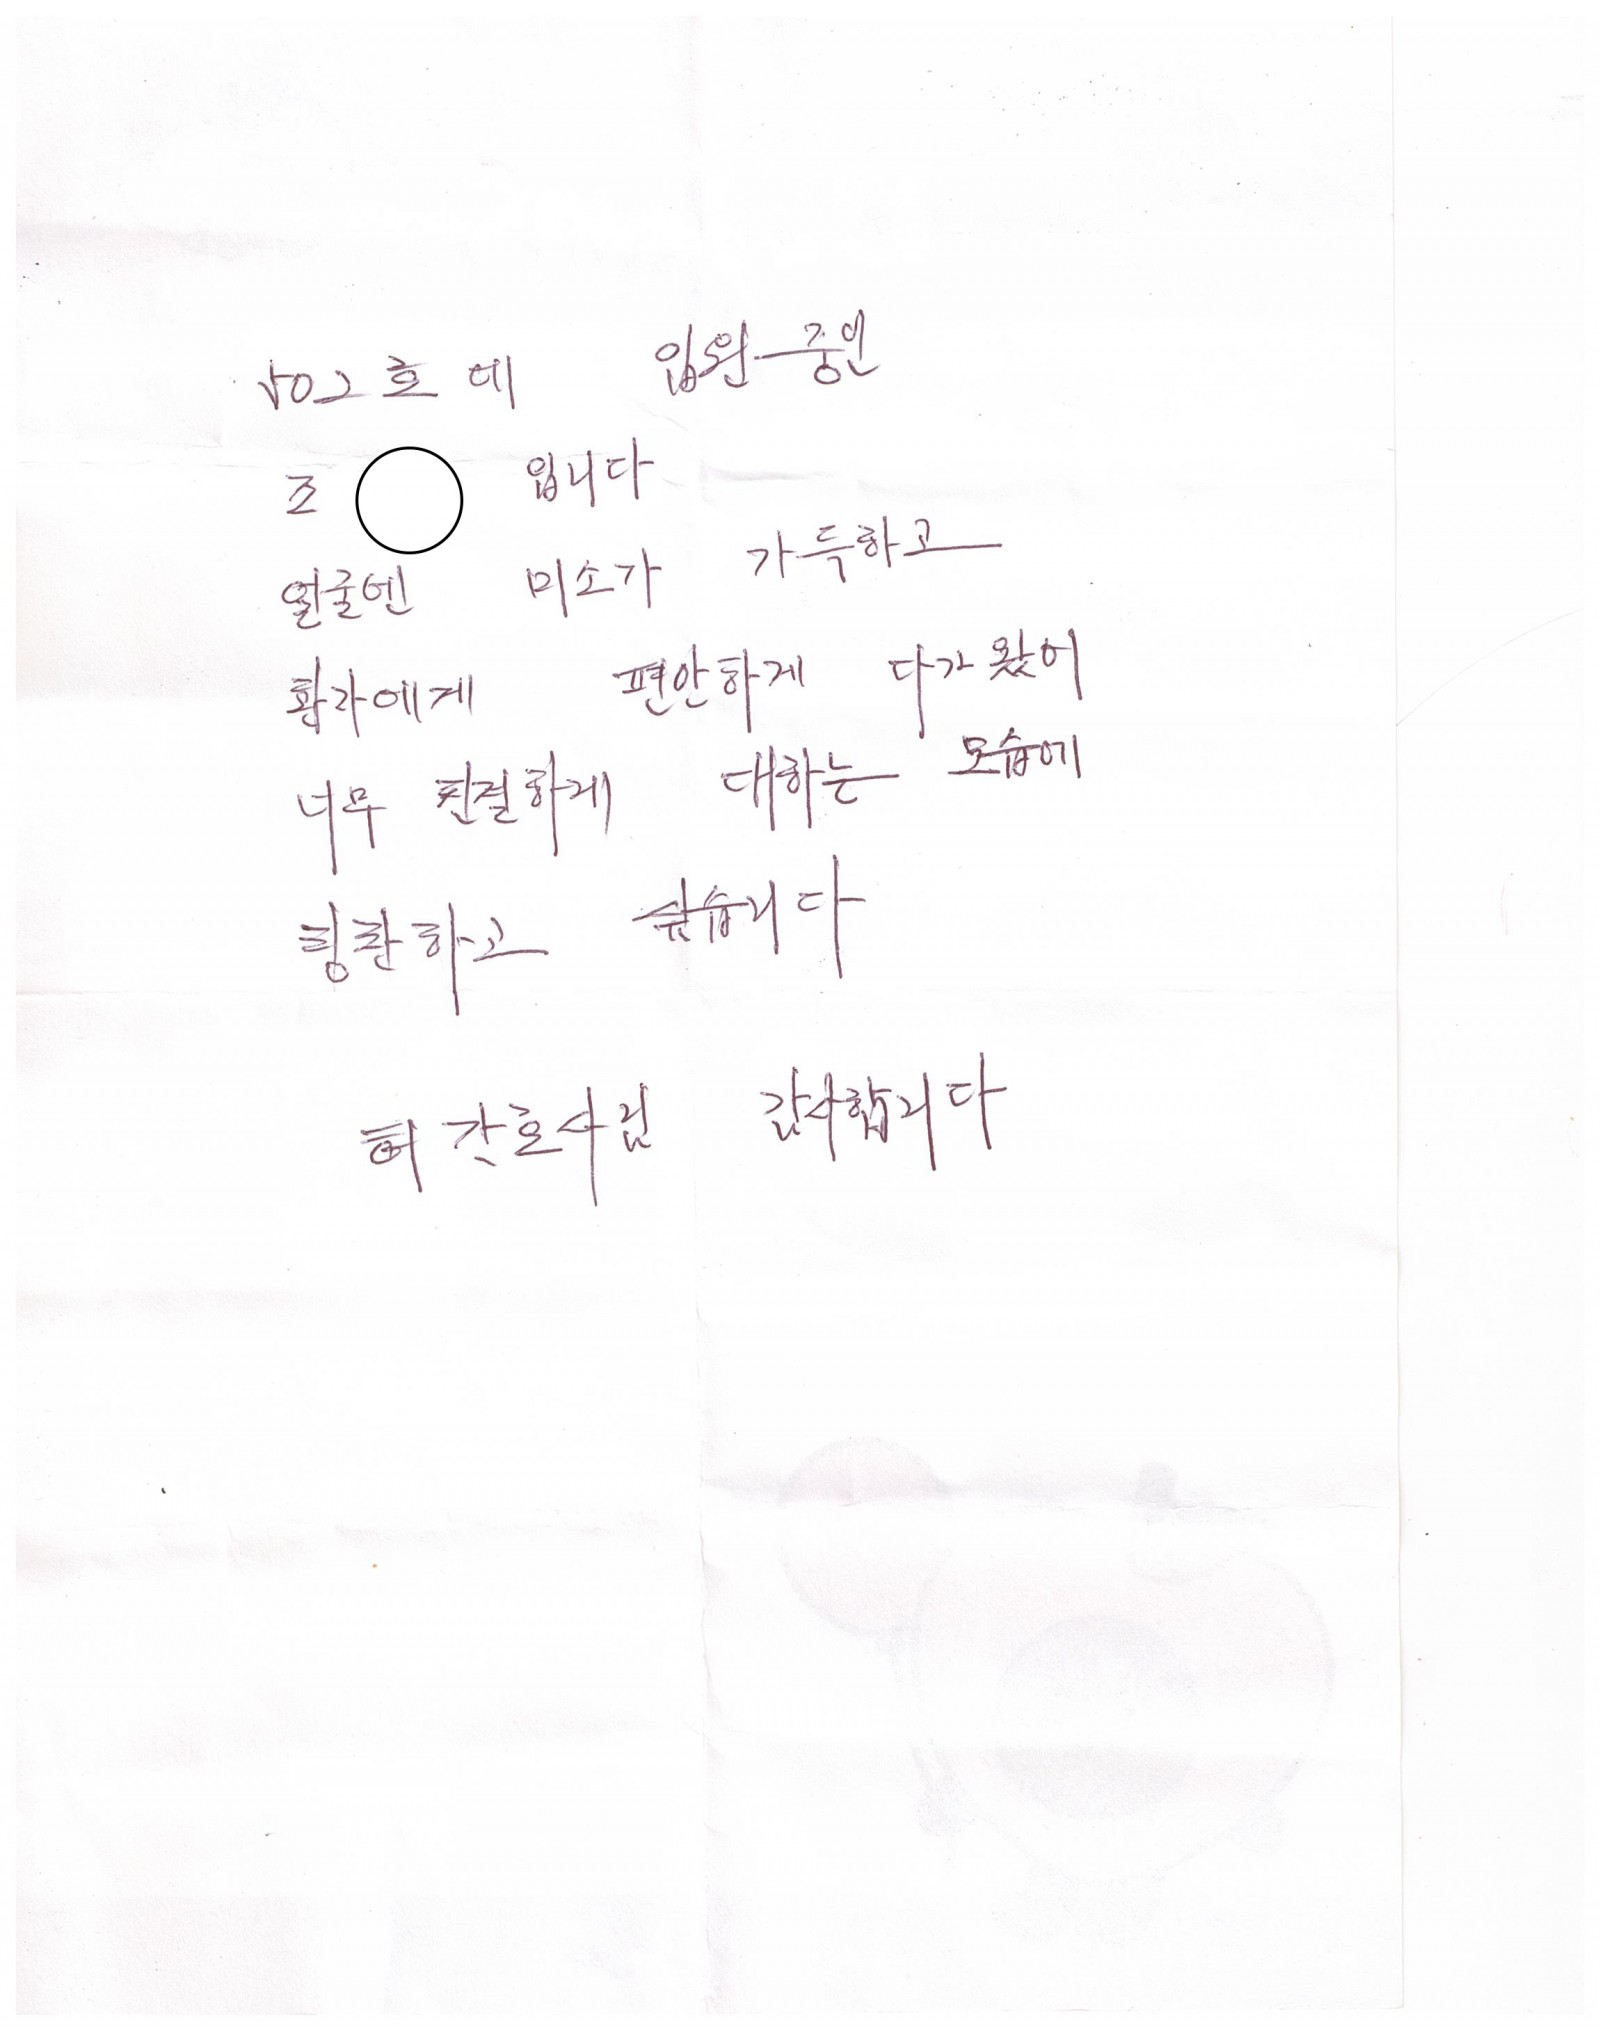 502호에 입원중인
조 입니다
얼굴엔 미소가 가득하고
환자에게 편안하게 다가왔어
너무 친절하게 대하는 모습에
칭찬하고 싶습니다
허 간호사님 감사합니다